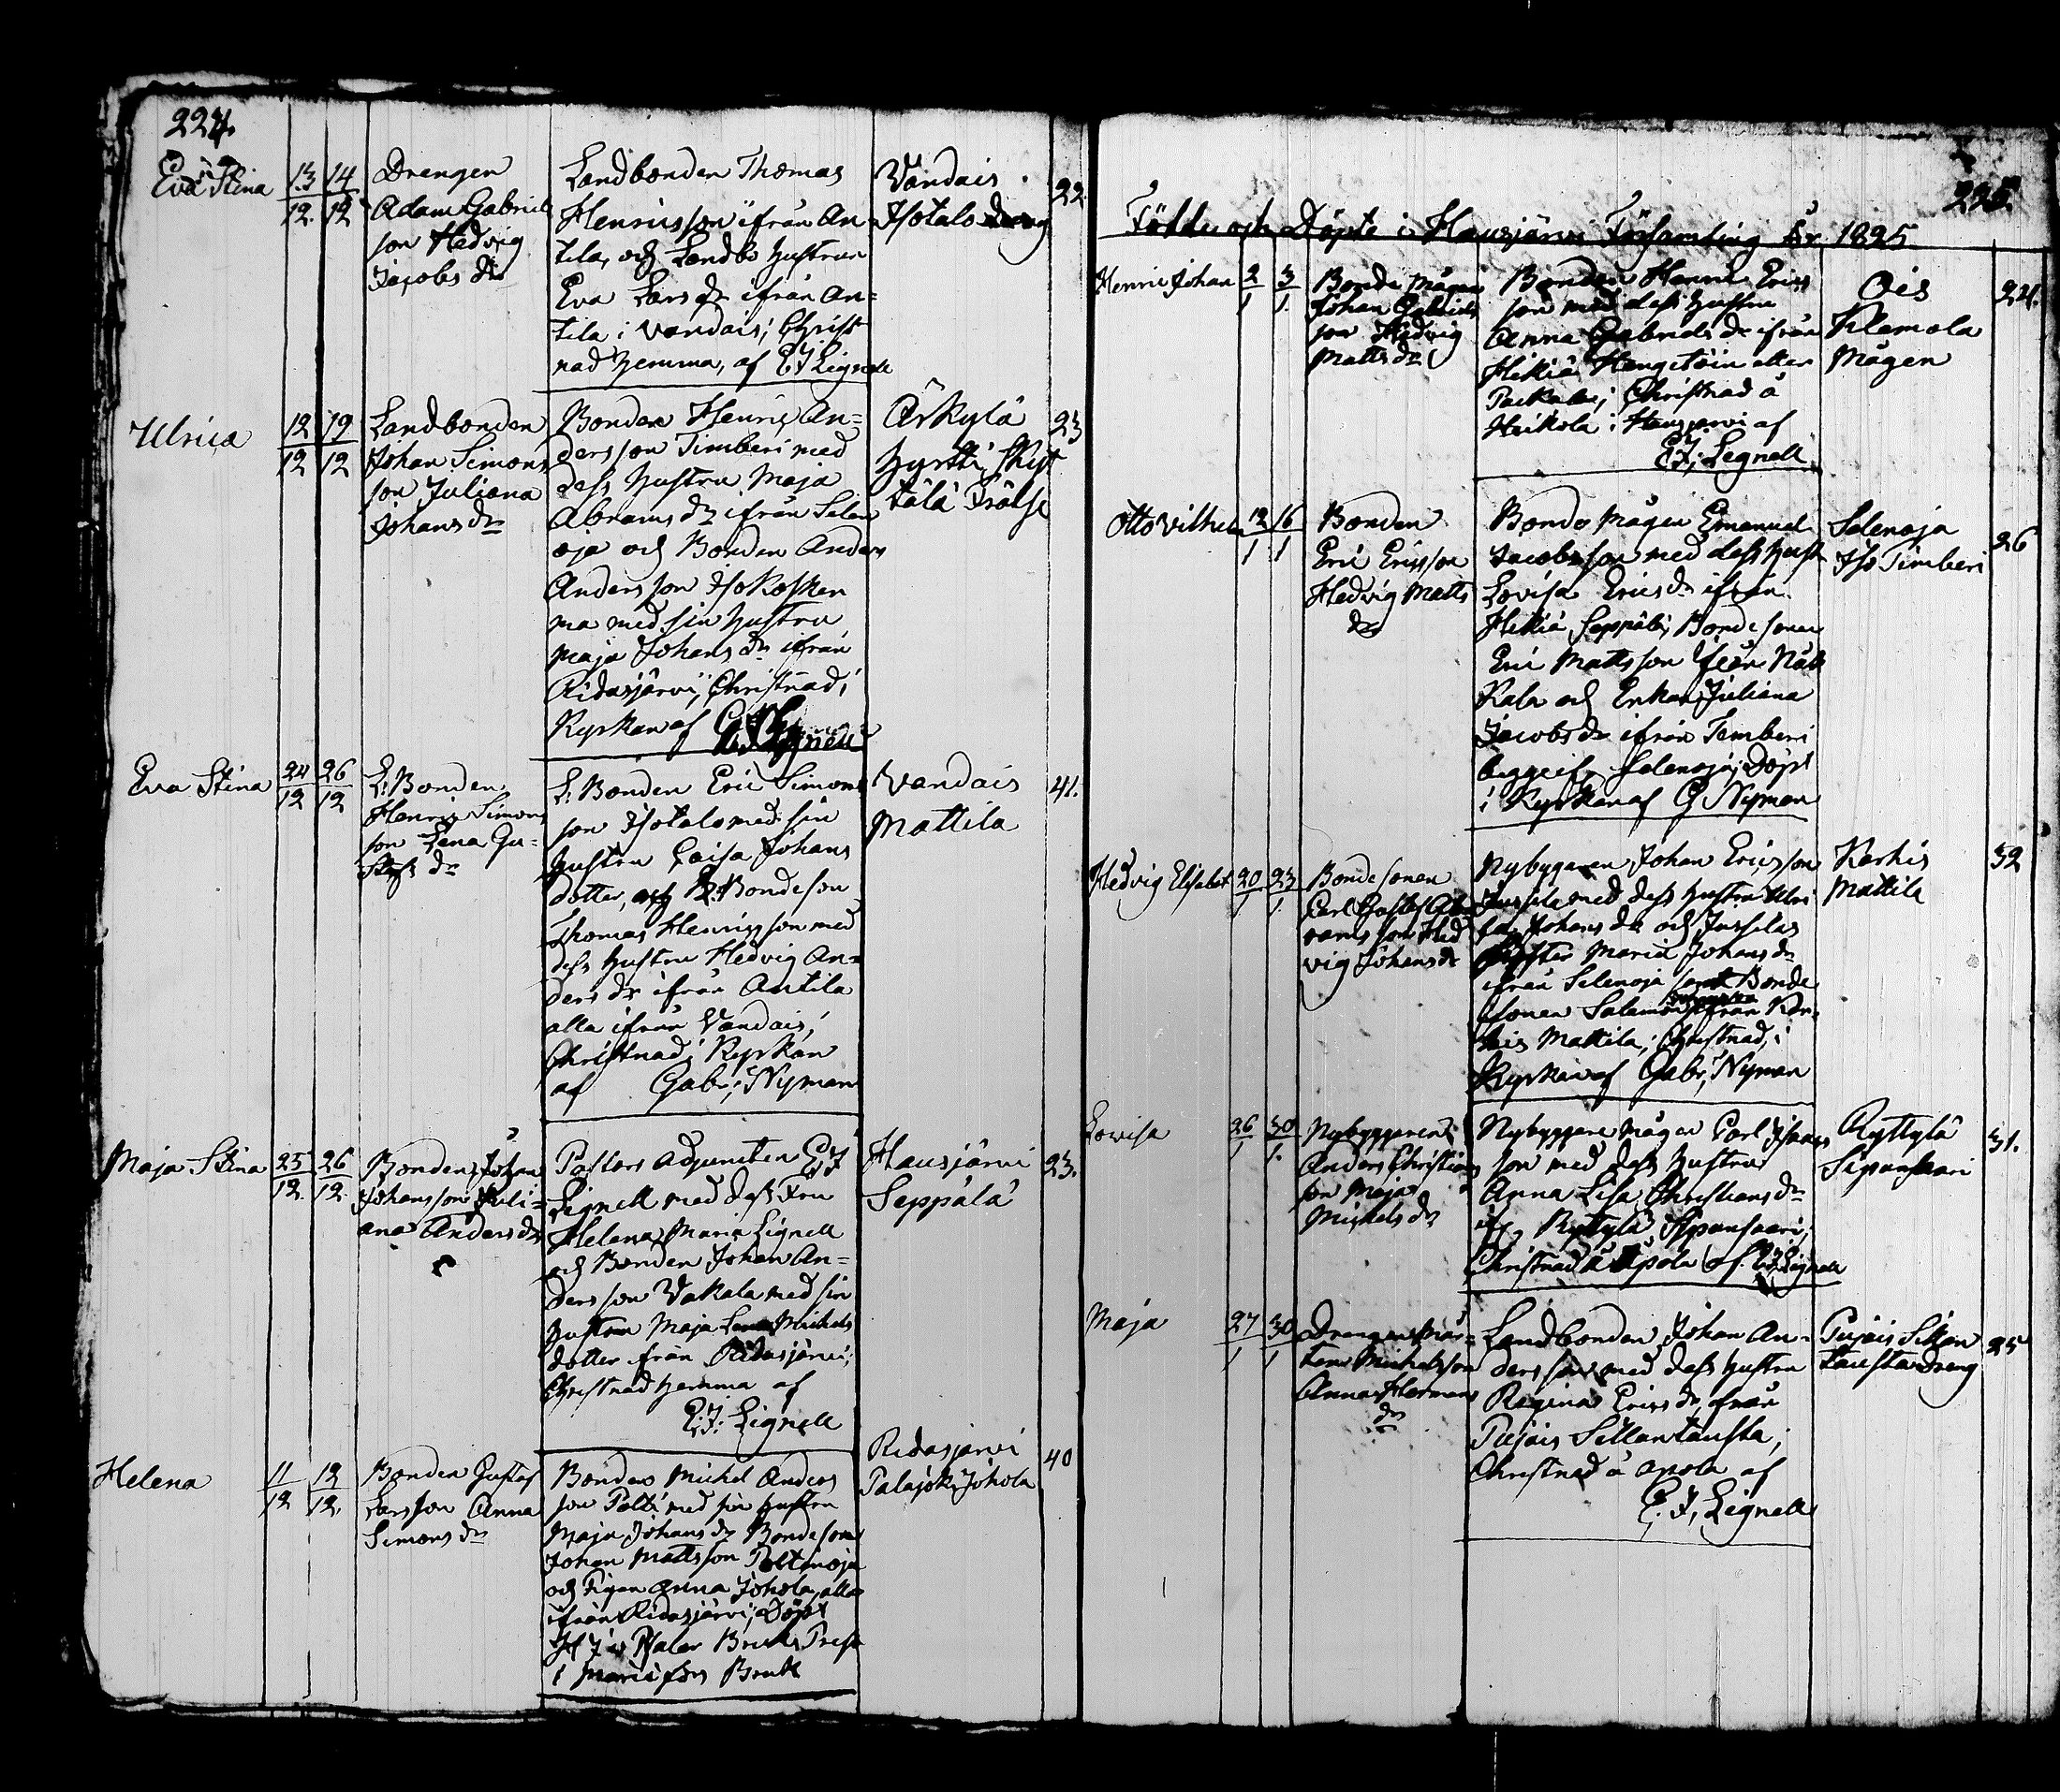 224.
Eva Stina
13 14
12. 12
Drengen
Adam Gabriels
son Hedvig
Jacobs dr
Landbonden Thomas
Henriksson ifrån An-
tila, och Landbo hustrun
Eva Lars dr ifrån An=
tila i Vandais; Christ
nad hemma, af E J Lignell
Vandais
Isotalo dreng
22.
Ulrica
12 19
12 12
Landbonden
Johan Simons
son Juliana
Johans dr
Bonden Henric An=
dersson Timberi med
dess hustru Maja
Abrams dr ifrån Selen
oja och Bonden Anders
Andersson Isokosken
ma med sin hustru
Maja Johans dr ifrån
Ridasjärvi; Christnad i
Kyrkan af
Lignell
Årkylä
Hyrtti
tälä Frälse
23
Eva Stina
24 26
12 12
L: Bonden
Henric Simons
son Lena Gu-
stafs dr
L: Bonden Eric Simons
son Isotalo med sin
hustru Caisa Johans
dotter, och Bondeson
Thomas Henricsson med
dess hustru Hedvig An=
ders dr ifrån Antila
alla ifrån Vandais;
Christnad i Kyrkan
af Gabr; Nyman
Vandais
Mattila
41.
Maja Stina
25 26
12. 12.
Bonden Johan
Johansson Juli-
ana Anders dr
Pastors Adjuncten E J
Lignell med dess Fru
Helena Maria Lignell
och Bonden Johan An=
dersson Vakala med sin
hustru Maja Lena Michels
dotter ifrån Ridasjärvi;
Christnad hemma af
E; J: Lignell
Hausjärvi
Seppälä
23.
Helena
11 12
12 12.
Bonden Gustaf
Larsson Anna
Simons dr
Bonden Michel Anders
son Palti med sin hustru
Maja Johans dr Bondeson
Johan Mattsson Poltinoja
och Pigan Anna Johola, alla
ifrån Ridasjärvi; Döpt
af Bruks Prest
i Mariefors Bruk
Ridasjärvi
Palajoki Johola
40
225.
Födde och Döpte i Hausjärvi Församling År 1825
Henric Johan
2 3
1 1.
Bonde Mågen
Johan Gabriels
son Hedvig
Matts dr
Bonden Henric Erics
son med dess hustru
Anna Gabriels dr ifrån
Hikiä Hangitöin eller
Paikala; Christnad å
Heikola i Hausjärvi af
E J; Legnell
Ois
Klemola
Mågen
24.
Otto Vilhelm
12 16
1 1
Bonden
Eric Ericsson
Hedvig Matts
dr
Bondo Mågen Emanuel
Jacobsson med dess hust
Lovisa Erics dr ifrån
Hikiä Seppälä; Bonde sonen
Eric Mattsson ifrån Näk
kala och Enkan Juliana
Jacobs dr ifrån Temberi
begge if. Selenoja; Döpt
i Kyrkan af G Nyman
Selenoja
Iso Timberi
26
Hedvig Elisabet
20 23
1. 1.
Bonde sonen
Carl Gustaf Ab
rams son Hed
vig Johans dr
Nybygaren Johan Ericsson
Jussila med dess hustru Ulri
ca Johans dr och Jussilas
syster Maria Johans dr
ifrån Selenoja samt Bonde
sonen Salamon ifrån Kar
his Mattila; Christnad, i
Kyrkan af Gabr; Nyman
Karhis
Mattila
32
Lovisa
26 30
1 1.
Nybyggaren
Anders Christians
son Maja
Michels dr
Nybyggare mågen Carl Isaacs
son med dess hustru
Anna Lisa Christians dr
if. Ryttylä Sipansaari;
Christnad å Apola af. E J Lignell
Ryttylä
Sipansaari
31.
Maja
27 30
1 1
Drengen Mår-
ten Michelsson
Anna Hermans
dr
Landbonden Johan An-
dersson med dess hustru
Regina Erics dr, från
Pujais Sillantausta;
Christnad å Apola af
E. J, Lignell
Pujais Sillan
tausta dreng
25